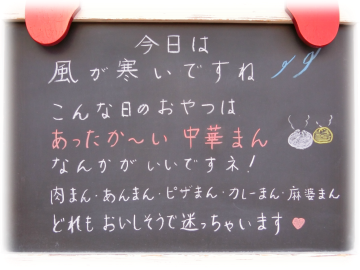 今日は
風が寒いですね
こんな日のおやつは
あったか〜い 中華まん
なんかがいいですネ!
肉まん・あんまん・ピザまん・カレーまん・麻婆まん
どれも おいしそうで迷っちゃいます♥